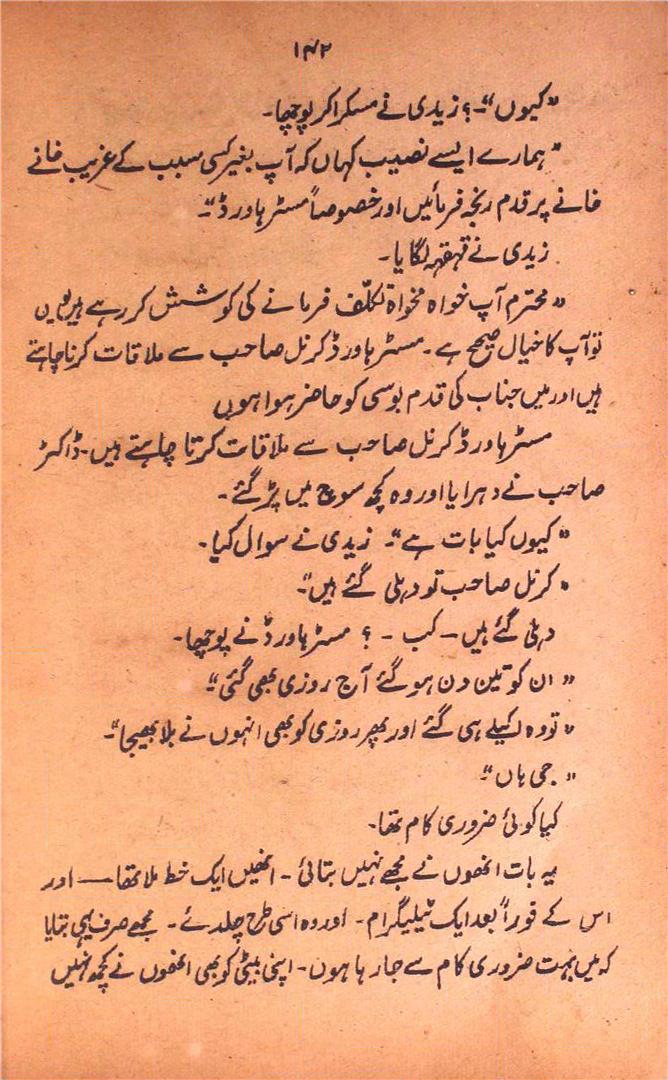 ۱۴۲
"کیوں"۔؟ زیدی نے مسکرا کر پوچھا۔
"ہمارے ایسے نصیب کہاں کہ آپ بغیر کسی سبب کے غریب خانے
خانے پر قدم رنجہ فرمائیں اور خصوصاً مسٹر ہاورڈ"۔
زیدی نے قہقہہ لگایا۔
"محترم آپ خواہ مخواہ تکلّف فرمانے کی کوشش کر رہے ہیں یوں
تو آپ کا خیال صحیح ہے۔ مسٹر ہاورڈ کرنل صاحب سے ملاقات کرنا چاہتے
ہیں اور میں جناب کی قدم بوسی کو حاضر ہوا ہوں
مسٹر ہاورڈ کرنل صاحب سے ملاقات کرتا چاہتے ہیں۔ ڈاکٹر
صاحب نے دہرایا اور وہ کچھ سوچ میں پڑ گئے۔
"کیوں کیا بات ہے"۔ زیدی نے سوال کیا۔
"کرنل صاحب تو دہلی گئے ہیں"۔
دہلی گئے ہیں ۔ کب ۔ ؟ مسٹر ہاورڈ نے پوچھا۔
"ان کو تین دن ہو گئے آج روزی بھی گئی"۔
"تو وہ اکیلے ہی گئے اور پھر روزی کو بھی انہوں نے بلا بھیجا"۔
"جی ہاں"۔
کیا کوئی ضروری کام تھا۔
یہ بات انھوں نے مجھے نہیں بتائی۔ انھیں ایک خط ملا تھا ــــ اور
اس کے فوراً بعد ایک ٹیلیگرام۔ اور وہ اسی طرح چلدئے۔ مجھے صرف یہی بتایا
کہ میں بہت ضروری کام سے جا رہا ہوں۔ اپنی بیٹی کو بھی انھوں نے کچھ نہیں